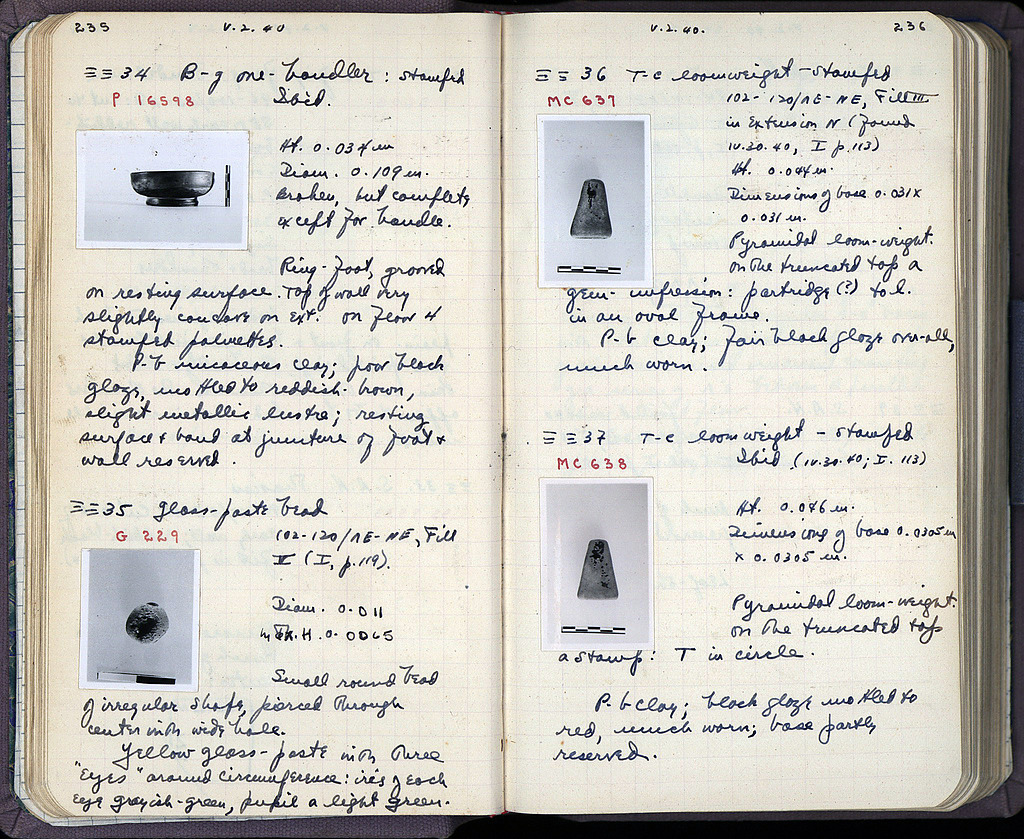 235
V. 2. 40
ΞΞ 34 B-g one-handler : stamped
P 16598
Ibid.
Ht. 0.034 m
Diam. 0.109 m.
Broken, but complete
except for handle.
Ring-foot, grooved
on resting surface. Top of wall very
slightly concave on ext. On floor 4
stamped palmettes.
P-b micaceous clay; poor black
glaze, mottled to reddish-brown,
slight metallic lustre; resting
surface & band at juncture of foot &
wall reserved.
ΞΞ 35 Glass-paste bead
G 229
102-120/ΛΕ-ΝΕ, Fill
V (I, p.119).
Diam. 0.011
H. 0.0065
Small round bead
of irregular shape, pierced through
center with wide hole.
Yellow glass-paste with three
"eyes" around circumference: iris of each
eye grayish-green, pupil a light green.
V. 2. 40.
236
ΞΞ 36 T-c loomweight - stamped
MC 637
102-120/ΛΕ-ΝΕ, Fill III
in Extension N (found
IV.30.40, I p.113)
Ht. 0.044 m.
Dimensions of base 0.031 x
0.031 m.
Pyramidal loom-weight.
On the truncated top a
gem-impression: partridge (?) to l.
in an oval frame.
P-b clay; fair black glaze over-all,
much worn.
ΞΞ 37 T-c loomweight - stamped
MC 638
Ibid (IV.30.40; I. 113)
Ht. 0.046 m.
Dimensions of base 0.0305 m
x 0.0305 m.
Pyramidal loom-weight.
On the truncated top
a stamp: T in circle.
P-b clay; black glaze mottled to
red, much worn; base partly
reserved.